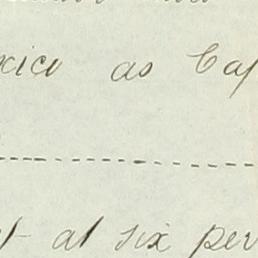 xico as Cap
at six per